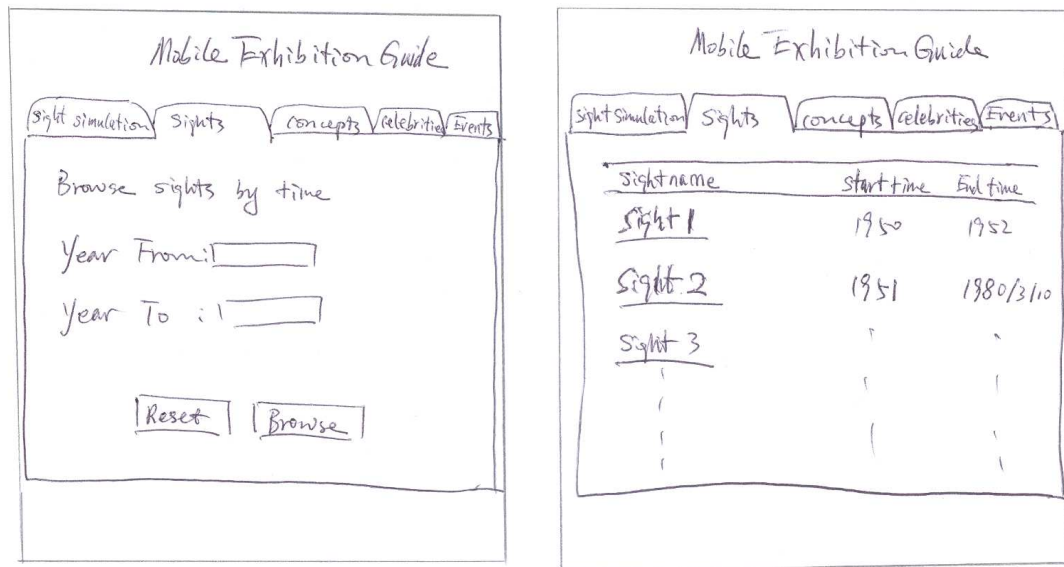 Mobile Exhibition Guide
Sight simulation Sights concepts celebrities Events
Browse sights by time
Year From:
Year To :
Reset Browse
Mobile Exhibition Guide
Sight Simulation Sights concepts celebrities Events
Sight name Start time End time
Sight 1 1950 1952
Sight 2 1951 1980/3/10
Sight 3